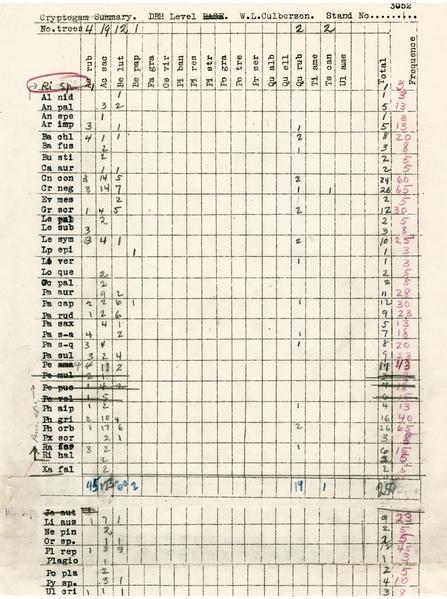 3052
Cryptogam Summary. DBH Level BASE. W.L.Culberson. Stand No........
No.trees 4 19 12 1 2 2
Ac rub Ac sac Be lut Be pap Fa gra Os vir Pi ban Pi res Pi str Po gra Po tre Pr ser Qu alb Qu ell Qu rub Ti ame Ts can Ul ame Total Frequence
Ri sp. 1 1 3
Al nid 1 1 3
An pal 3 2 5 13
An spe 1 1 3
Ar imp 3 1 1 5 13
Ba chl 4 1 1 2 8 20
Ba fus 2 1 3 8
Bu sti 2 2 5
Ca aur 1 1 2 5
Cn con 3 14 5 2 24 60
Cr neg 3 14 7 1 1 26 65
Ev mes 2 2 5
Gr scr 1 4 5 2 12 30
Le pal 2 2 5
Le sub 3 3 8
Le sym 3 4 1 2 10 25
Lp epi 1 1 3
Lo ver 1 1 3
Lo que 2 2 5
Oc pal 2 2 5
Pa aur 9 2 11 28
Pa cap 2 2 6 1 1 12 30
Pa rud 1 2 6 9 23
Pa sax 4 1 5 13
Pa s-a 4 2 1 7 18
Pa s-q 3 4 1 8 20
Pa sul 3 2 4 9 23
Pe ama 4 11 2 17 43
Pe mul 2 1
Pe puc 1 4 2 7 18
Pe vel 1 5 6 15
Ph aip 1 2 1 4 13
Ph gri 2 10 4 16 40
Ph orb 1 17 6 2 26 65
Px scr 2 1 3 8
Ra 3 2 1 6 15
Ri hal 2 2 5
Xa fal 2 2 5
45 60 2 19 1 250
Ja aut
Li aus 1 7 1 9 23
Ne pin 2 2 5
Or sp. 1 1 2 5
Pl rep 1 8 9 45
Plagio 1 1 3
Po pla 2 2 5
Py sp. 3 1 4 10
Ul cri 1 1 1 3 8